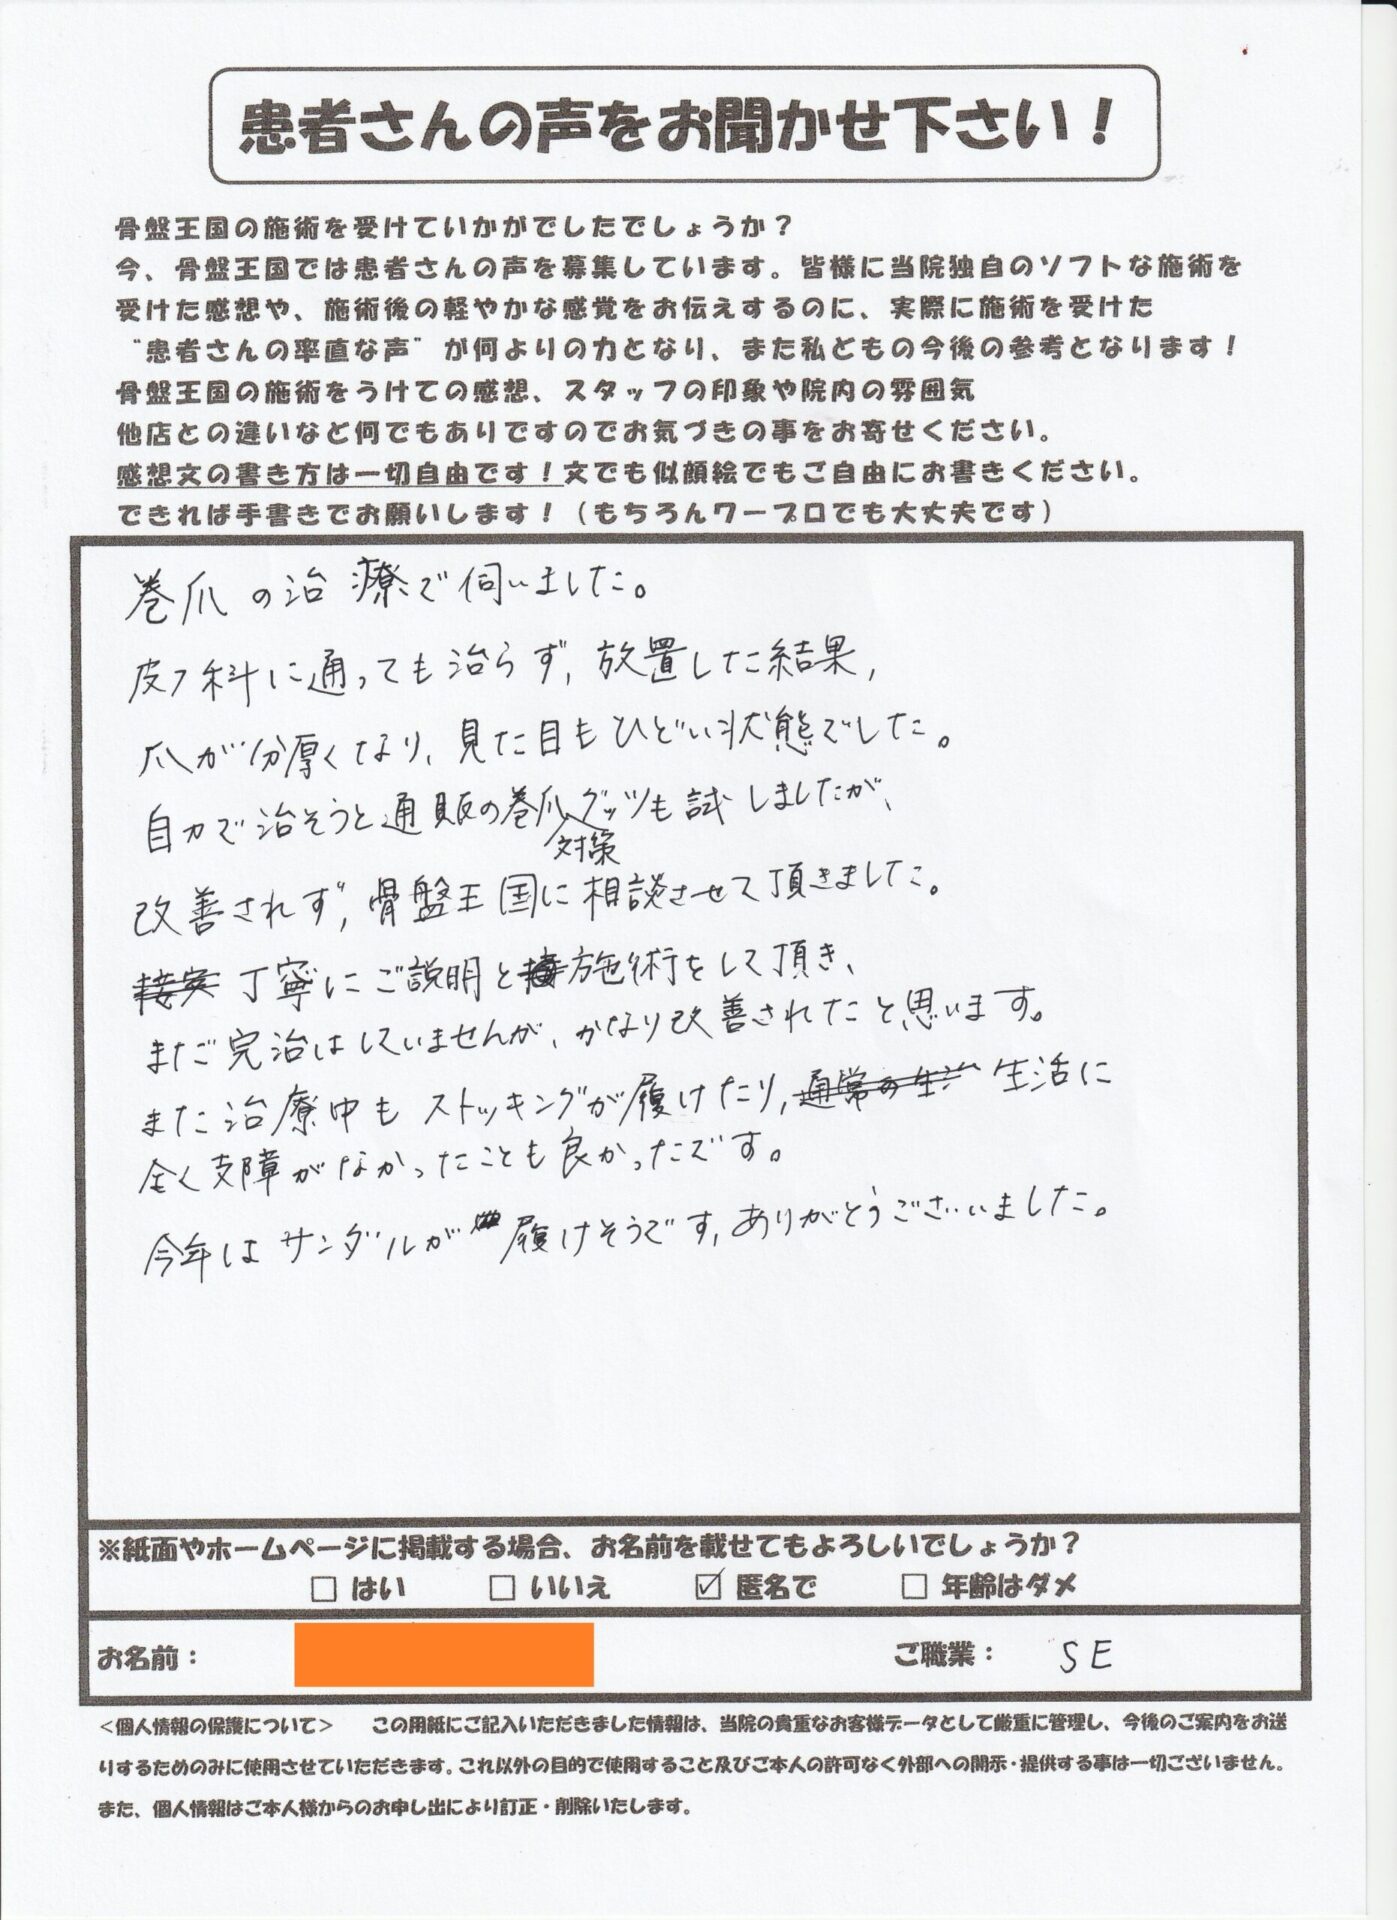 患者さんの声をお聞かせ下さい！
骨盤王国の施術を受けていかがでしたでしょうか？
今、骨盤王国では患者さんの声を募集しています。皆様に当院独自のソフトな施術を
受けた感想や、施術後の軽やかな感覚をお伝えするのに、実際に施術を受けた
"患者さんの率直な声"が何よりの力となり、また私どもの今後の参考となります！
骨盤王国の施術をうけての感想、スタッフの印象や院内の雰囲気
他店との違いなど何でもありですのでお気づきの事をお寄せください。
感想文の書き方は一切自由です！文でも似顔絵でもご自由にお書きください。
できれば手書きでお願いします！（もちろんワープロでも大丈夫です）
巻爪の治療で伺いました。
皮フ科に通っても治らず，放置した結果，
爪が分厚くなり，見た目もひどい状態でした。
自力で治そうと通販の巻爪対策グッツも試しましたが、
改善されず，骨盤王国に相談させて頂きました。
丁寧にご説明と施術をして頂き、
まだ完治はしていませんが、かなり改善されたと思います。
また治療中もストッキングが履けたり，通常の生活 生活に
全く支障がなかったことも良かったです。
今年はサンダルが履けそうです，ありがとうございました。
※紙面やホームページに掲載する場合、お名前を載せてもよろしいでしょうか？
□ はい □ いいえ ☑ 匿名で □ 年齢はダメ
お名前： ご職業： SE
＜個人情報の保護について＞ この用紙にご記入いただきました情報は、当院の貴重なお客様データとして厳重に管理し、今後のご案内をお送
りするためのみに使用させていただきます。これ以外の目的で使用すること及びご本人の許可なく外部への開示・提供する事は一切ございません。
また、個人情報はご本人様からのお申し出により訂正・削除いたします。